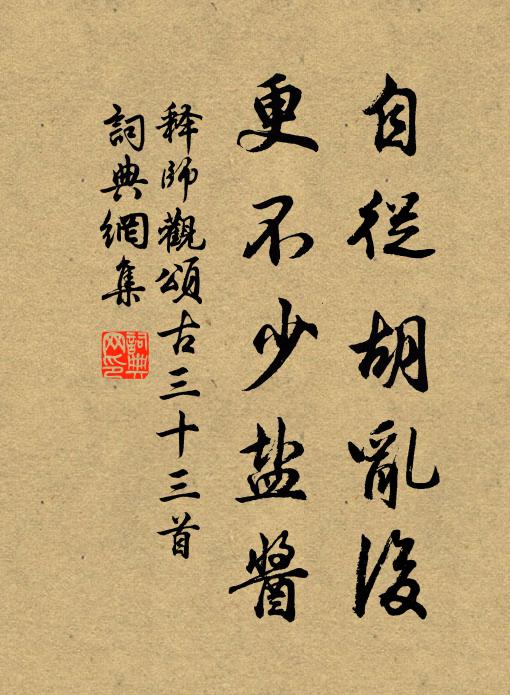 自從胡亂後
更不少盐醬
釋師觀頌古三十三首
詞典網集
詞典網印